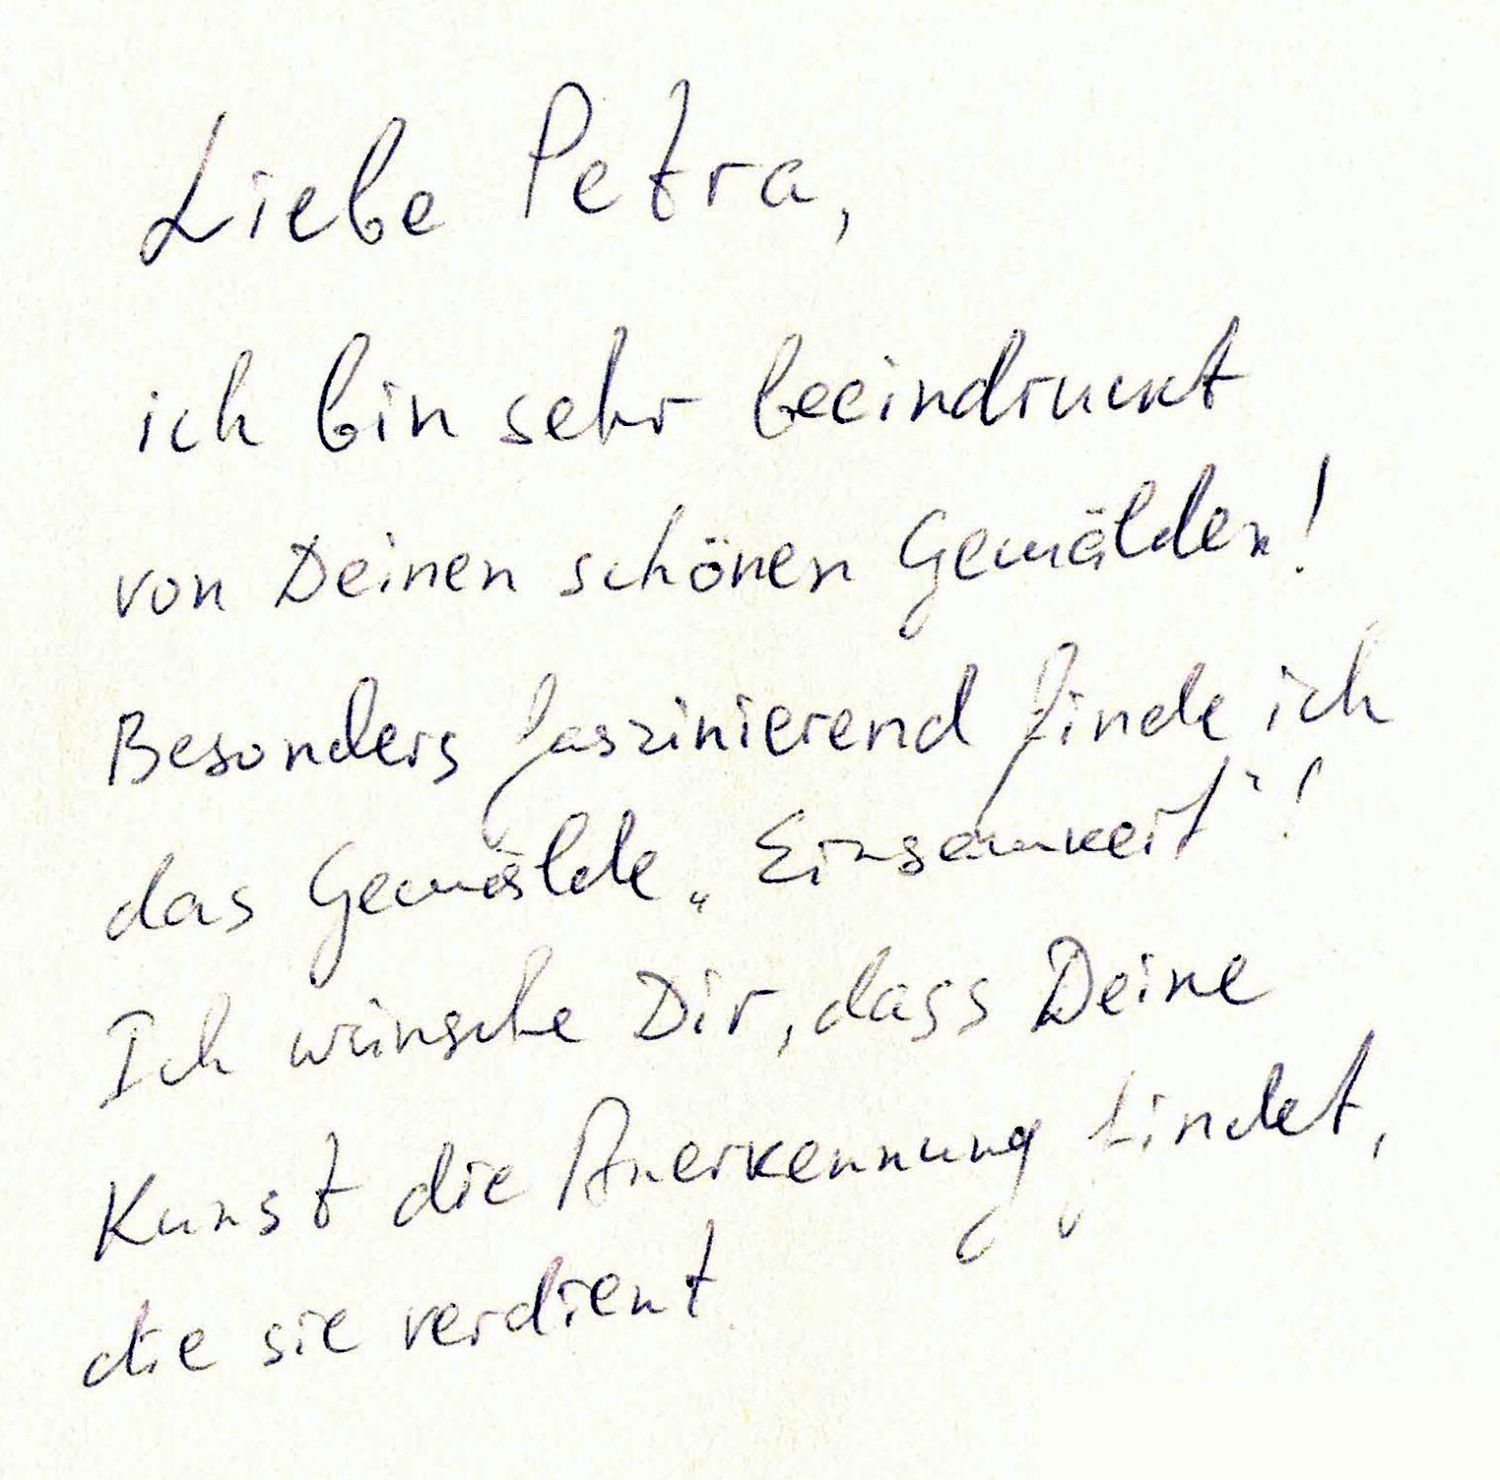 Liebe Petra,
ich bin sehr beeindruckt
von Deinen schönen Gemälden!
Besonders faszinierend finde ich
das Gemälde „Einsamkeit“!
Ich wünsche Dir, dass Deine
Kunst die Anerkennung findet,
die sie verdient